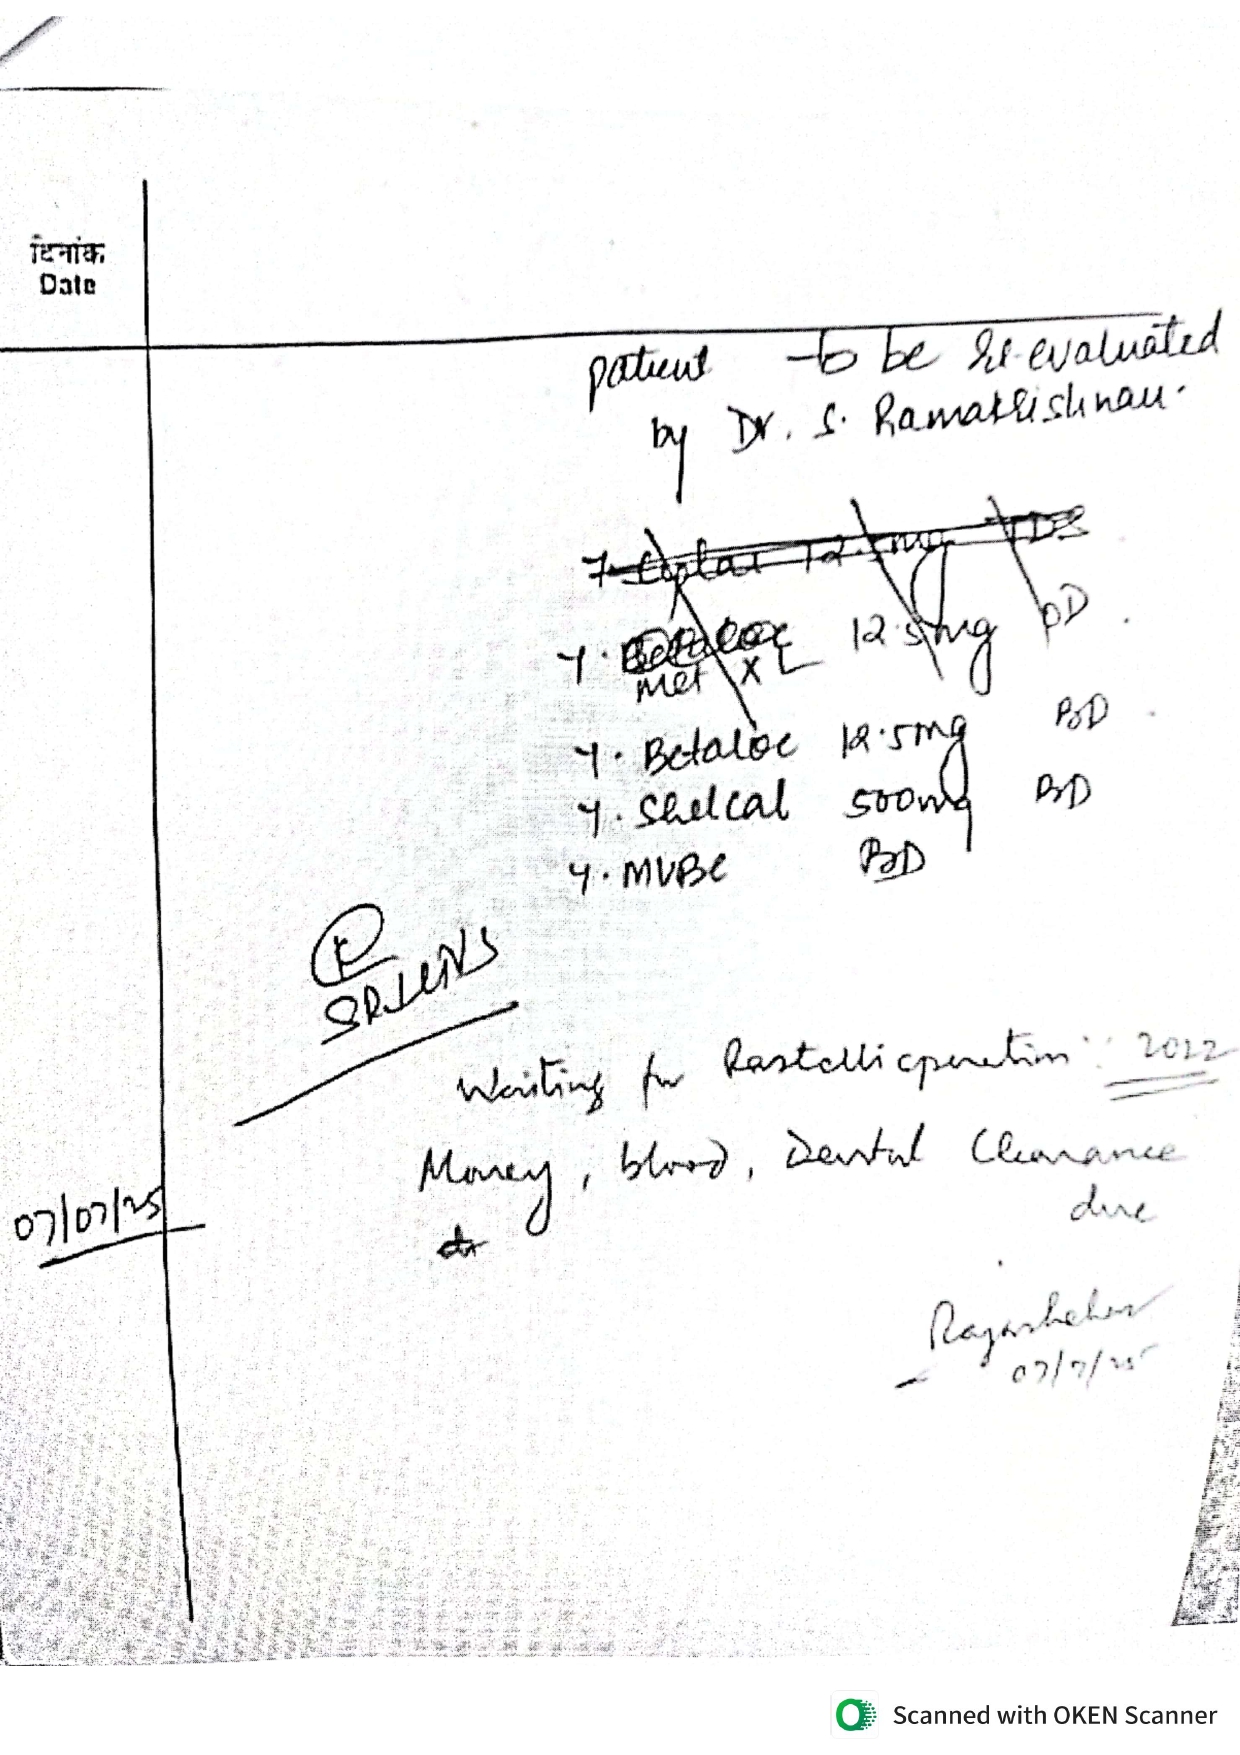 दिनांक
Date
patient to be Re-evaluated
by Dr. S. Ramakrishnan.
12.5mg TDS
T. Betaloc 12.5mg OD
Met XL
T. Betaloc 12.5mg BD
T. Shelcal 500mg BD
T. MVBC BD
Waiting for Rastelli operation 2022
07/07/25
Money, blood, Dental Clearance
due
Rajashekar
07/7/25
Scanned with OKEN Scanner